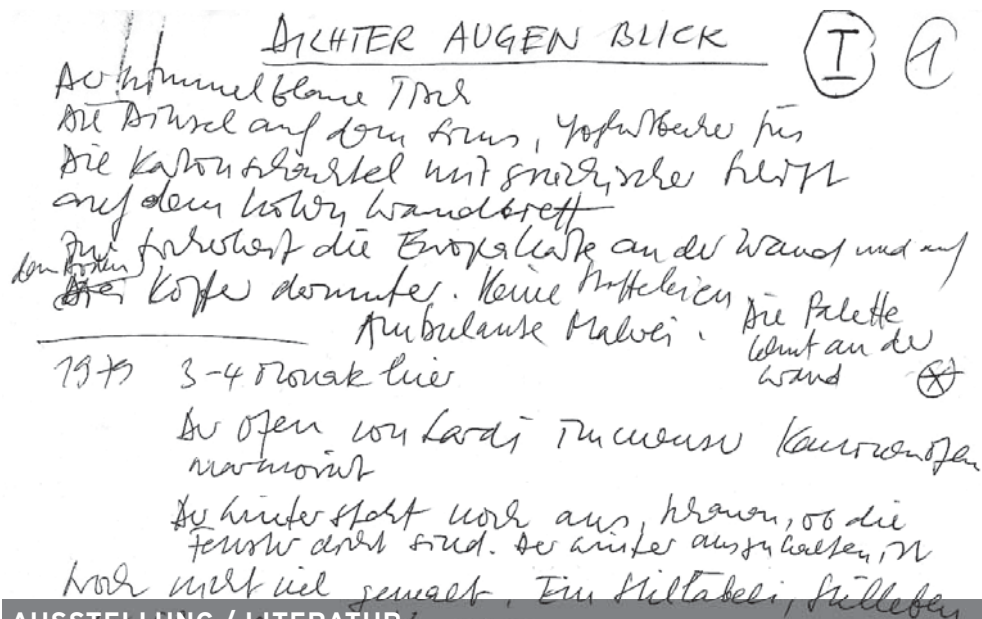 DICHTER AUGEN BLICK I 1
Der himmelblaue Tisch
Die Pinsel auf dem Sims, Yoghurtbecher
Die Kartonschachtel mit griechischer Schrift
auf dem hohen Wandbrett
die Europakarte an der Wand und auf
dem Boden
Koffer darunter. Keine Staffeleien
Ambulante Malerei. Die Palette
lehnt an der
Wand
1979 3-4 Monate hier
Der Ofen von Sardi immenser Kanonenofen
marmoriert
Der Winter steht noch aus, schauen, ob die
Fenster dicht sind. Der Winter auszuhalten, ist
Noch nicht viel gemalt. Ein Stilleben
AUSSTELLUNG / LITERATUR